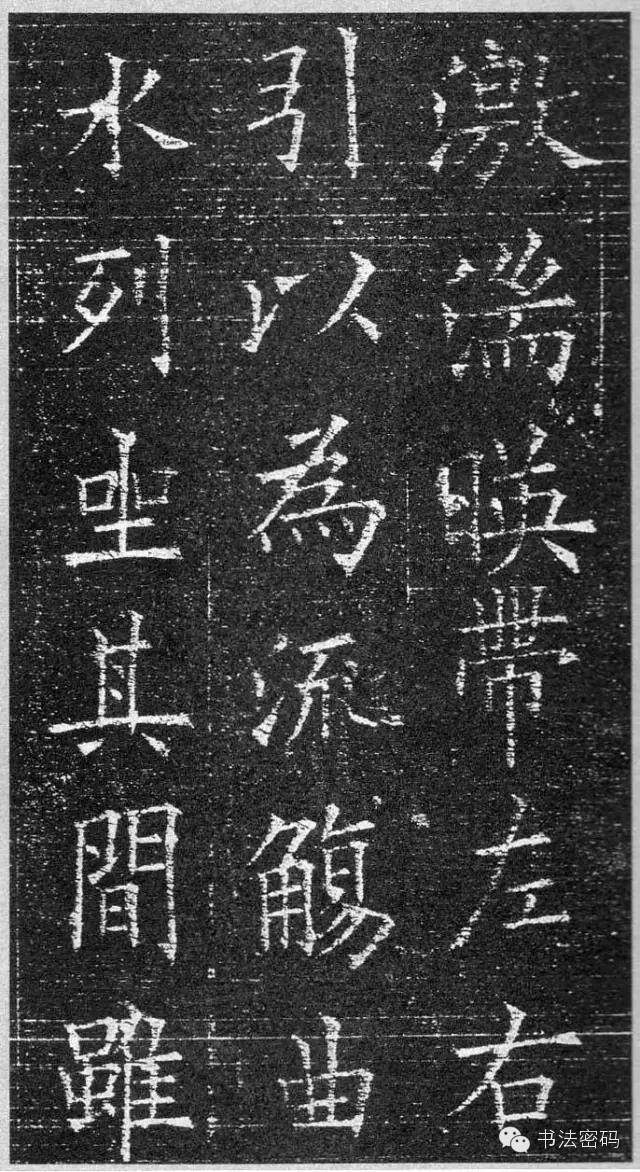 激湍暎帶左右
引以為流觴曲
水列坐其間雖
书法密码